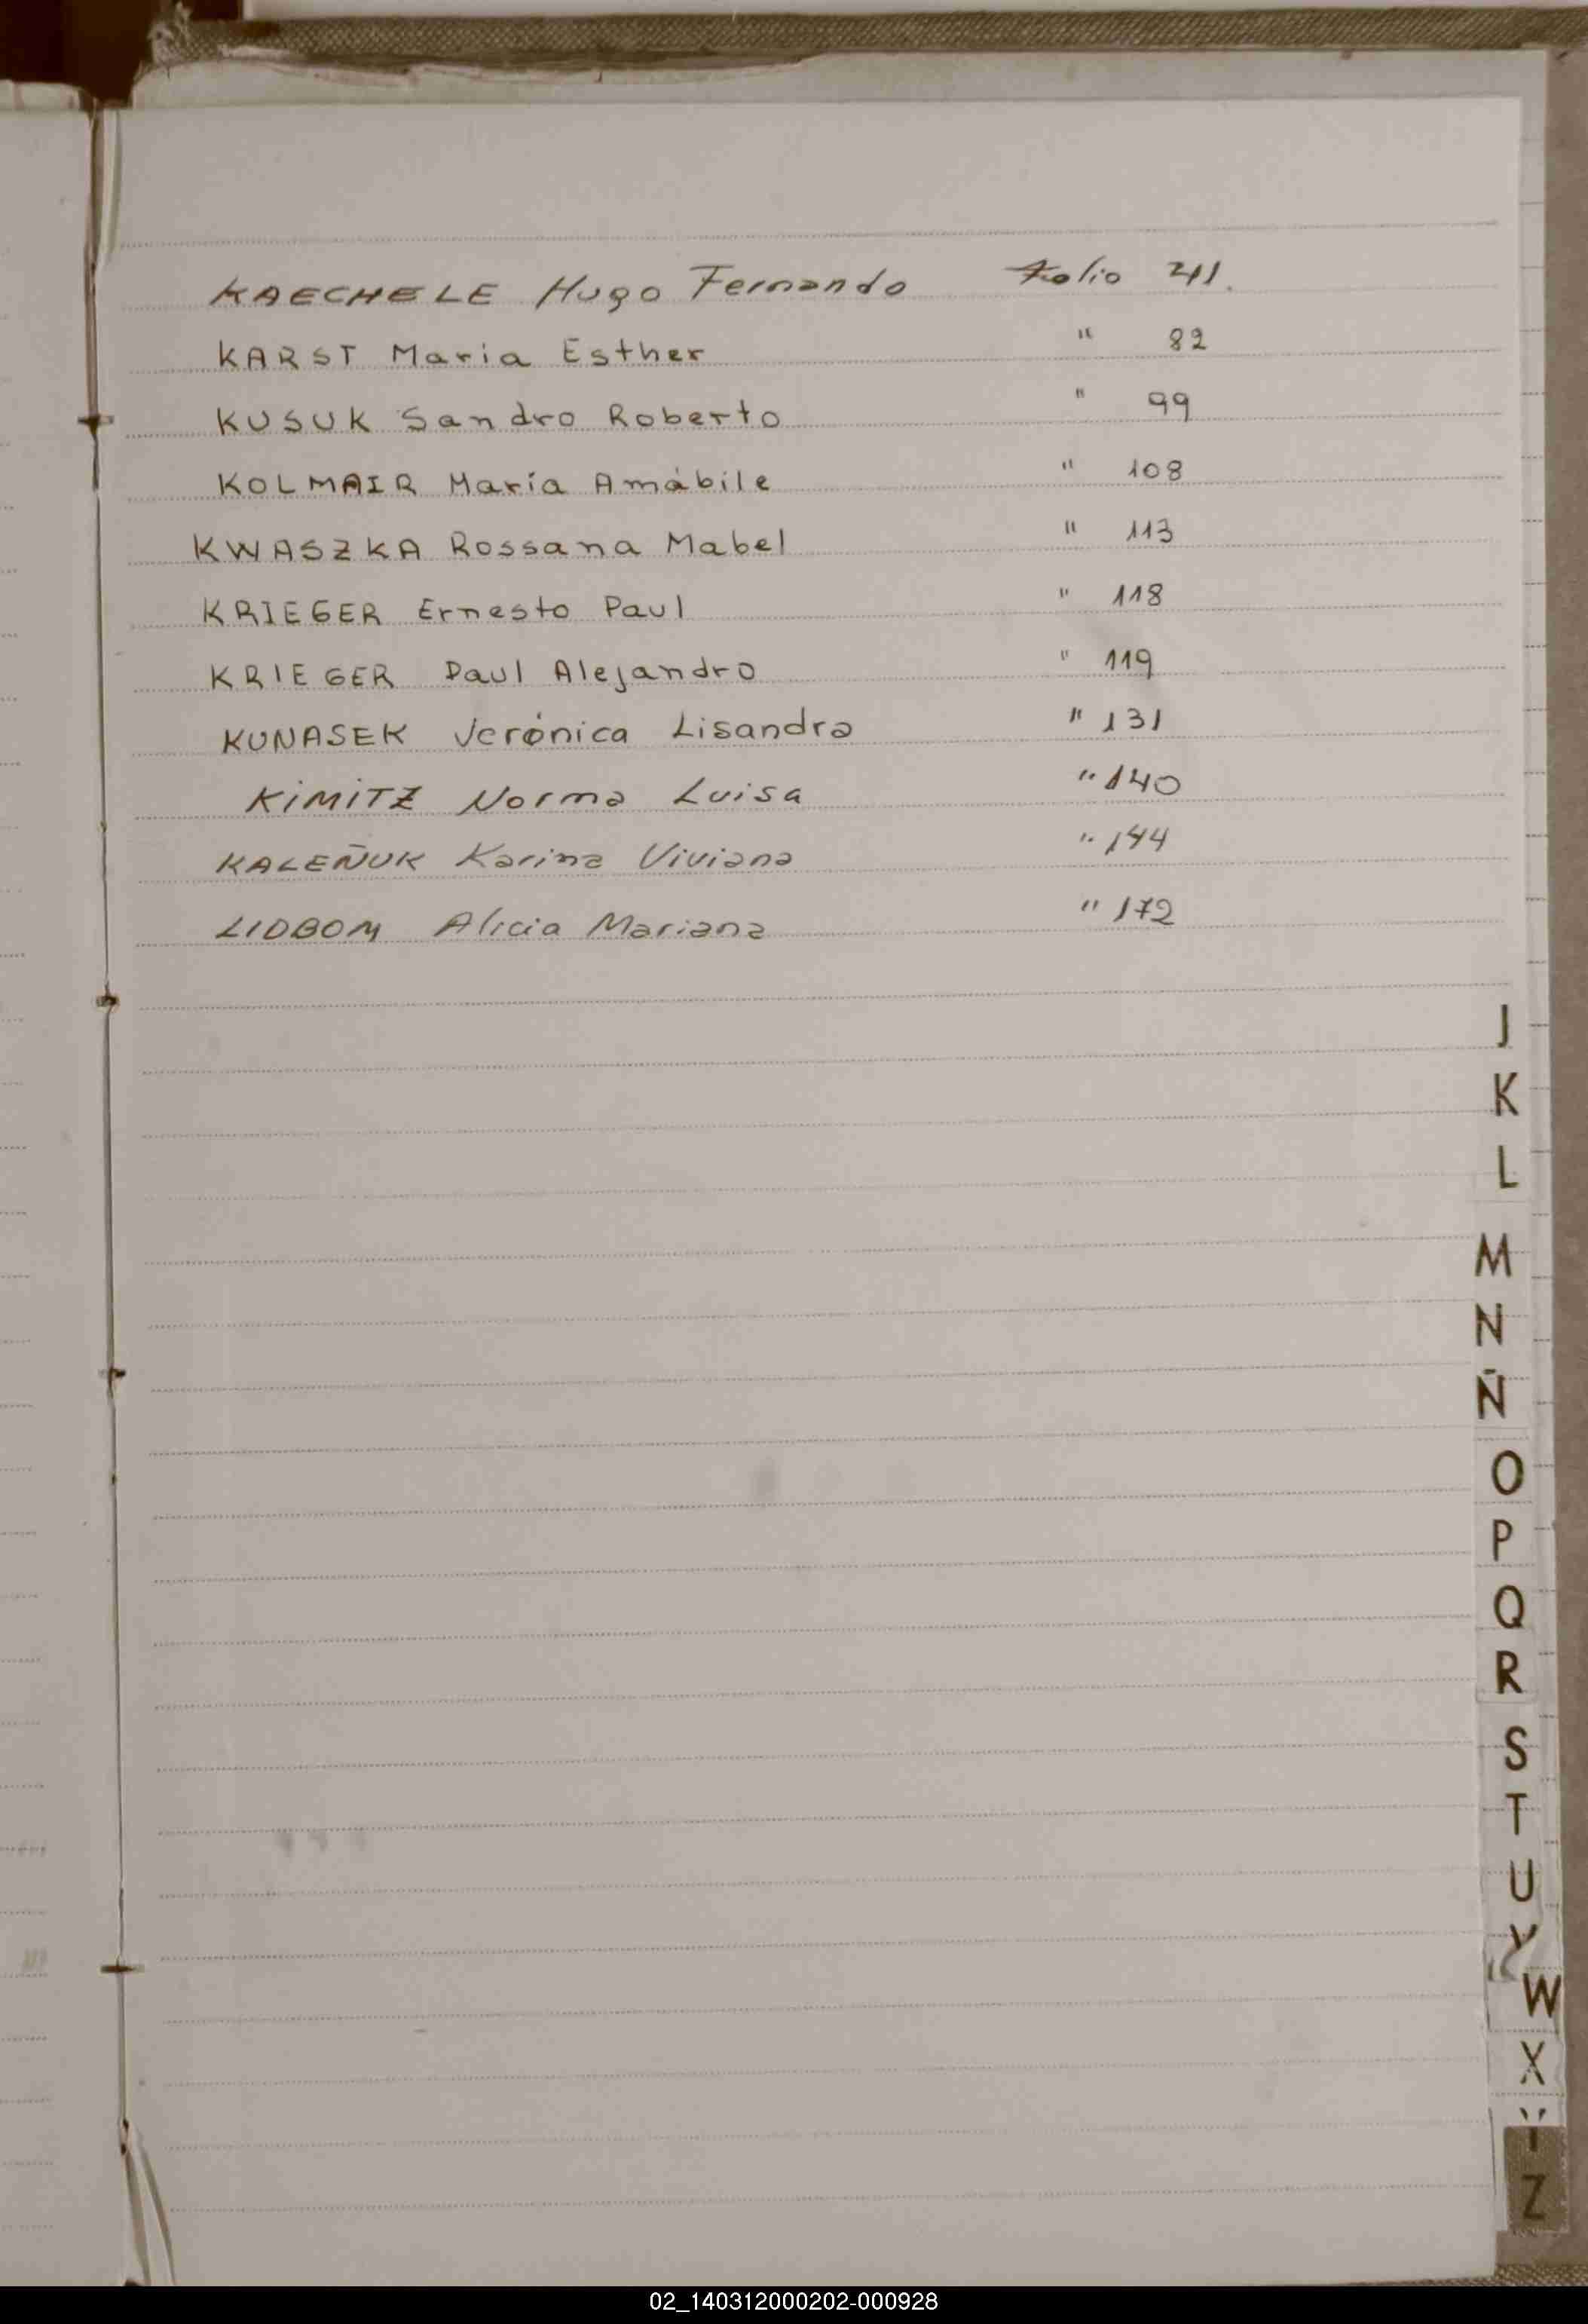 KAECHELE Hugo Fernando Folio 41.
KARST Maria Esther " 82
KUSUK Sandro Roberto " 99
KOLMAIR María Amábile " 108
KWASZKA Rossana Mabel " 113
KRIEGER Ernesto Paul " 118
KRIEGER Paul Alejandro " 119
KUNASEK Verónica Lisandra " 131
KIMITZ Norma Luisa " 140
KALEÑUK Karina Viviana " 144
LIDBOM Alicia Mariana " 172
J
K
L
M
N
Ñ
O
P
Q
R
S
T
U
V
W
X
Y
Z
02_140312000202-000928